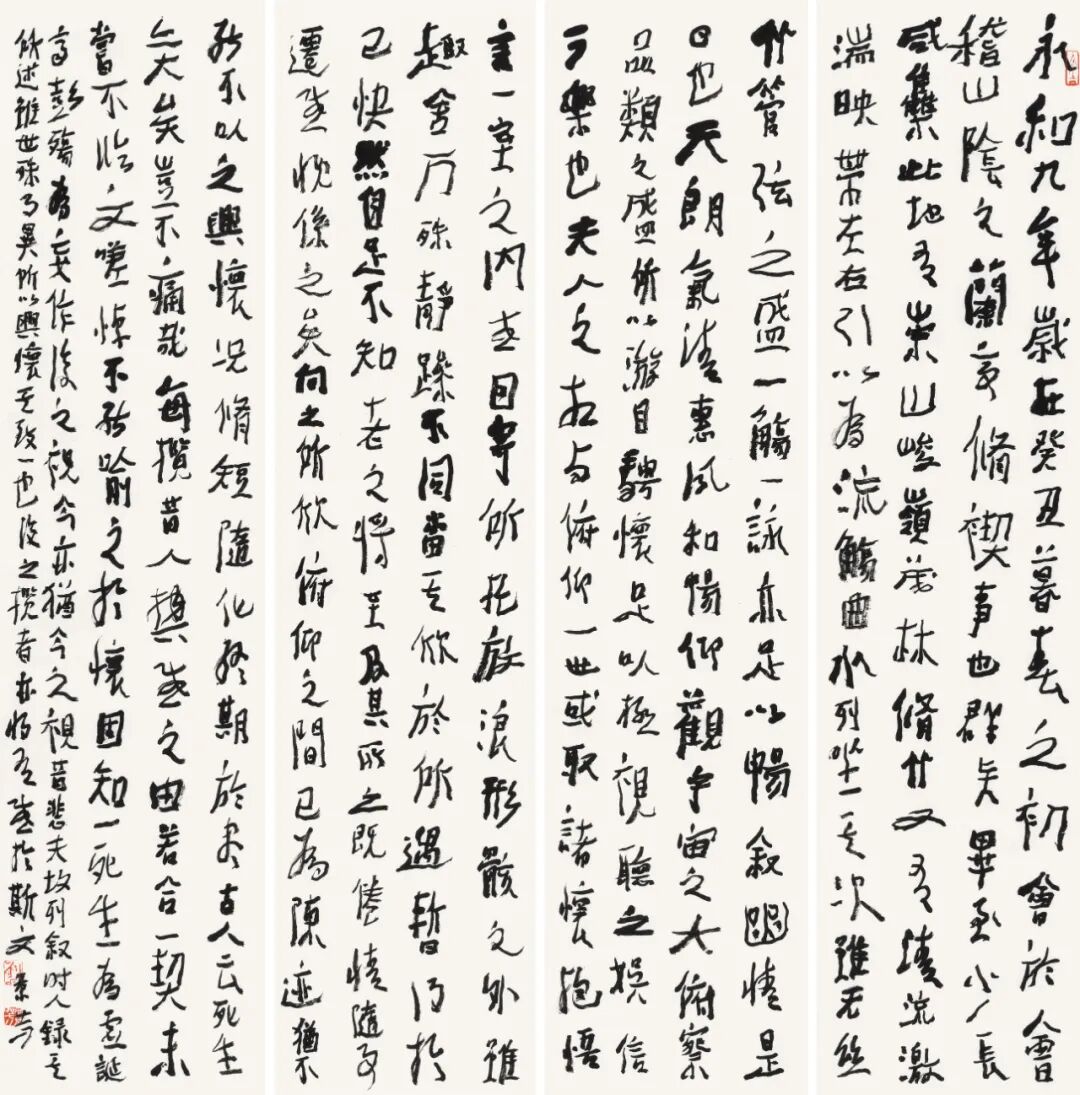 永和九年歲在癸丑暮春之初會於會
稽山陰之蘭亭脩禊事也群賢畢至少長
咸集此地有崇山峻嶺茂林脩竹又有清流激
湍映帶左右引以為流觴曲水列坐其次雖无絲
竹管弦之盛一觴一詠亦足以暢敘幽情是
日也天朗氣清惠風和暢仰觀宇宙之大俯察
品類之盛所以游目騁懷足以極視聽之娛信
可樂也夫人之相与俯仰一世或取諸懷抱悟
言一室之內或因寄所托放浪形骸之外雖
趣舍万殊靜躁不同當其欣於所遇暫得於
己快然自足不知老之將至及其所之既倦情隨事
遷感慨係之矣向之所欣俯仰之間已為陳迹猶不
能不以之興懷況脩短隨化終期於盡古人云死生
亦大矣豈不痛哉每攬昔人興感之由若合一契未
嘗不臨文嗟悼不能喻之於懷固知一死生為虛誕
齊彭殤為妄作後之視今亦猶今之視昔悲夫故列敘時人錄其
所述雖世殊事異所以興懷其致一也後之攬者亦將有感於斯文